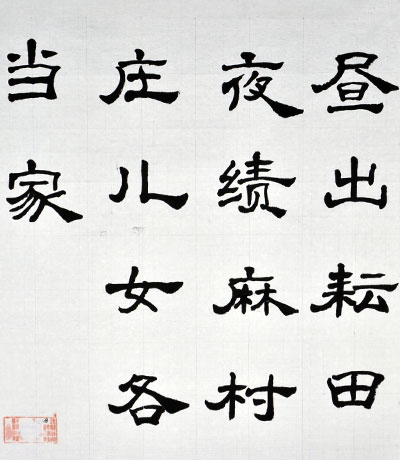 昼出耘田
夜绩麻村
庄儿女各
当家